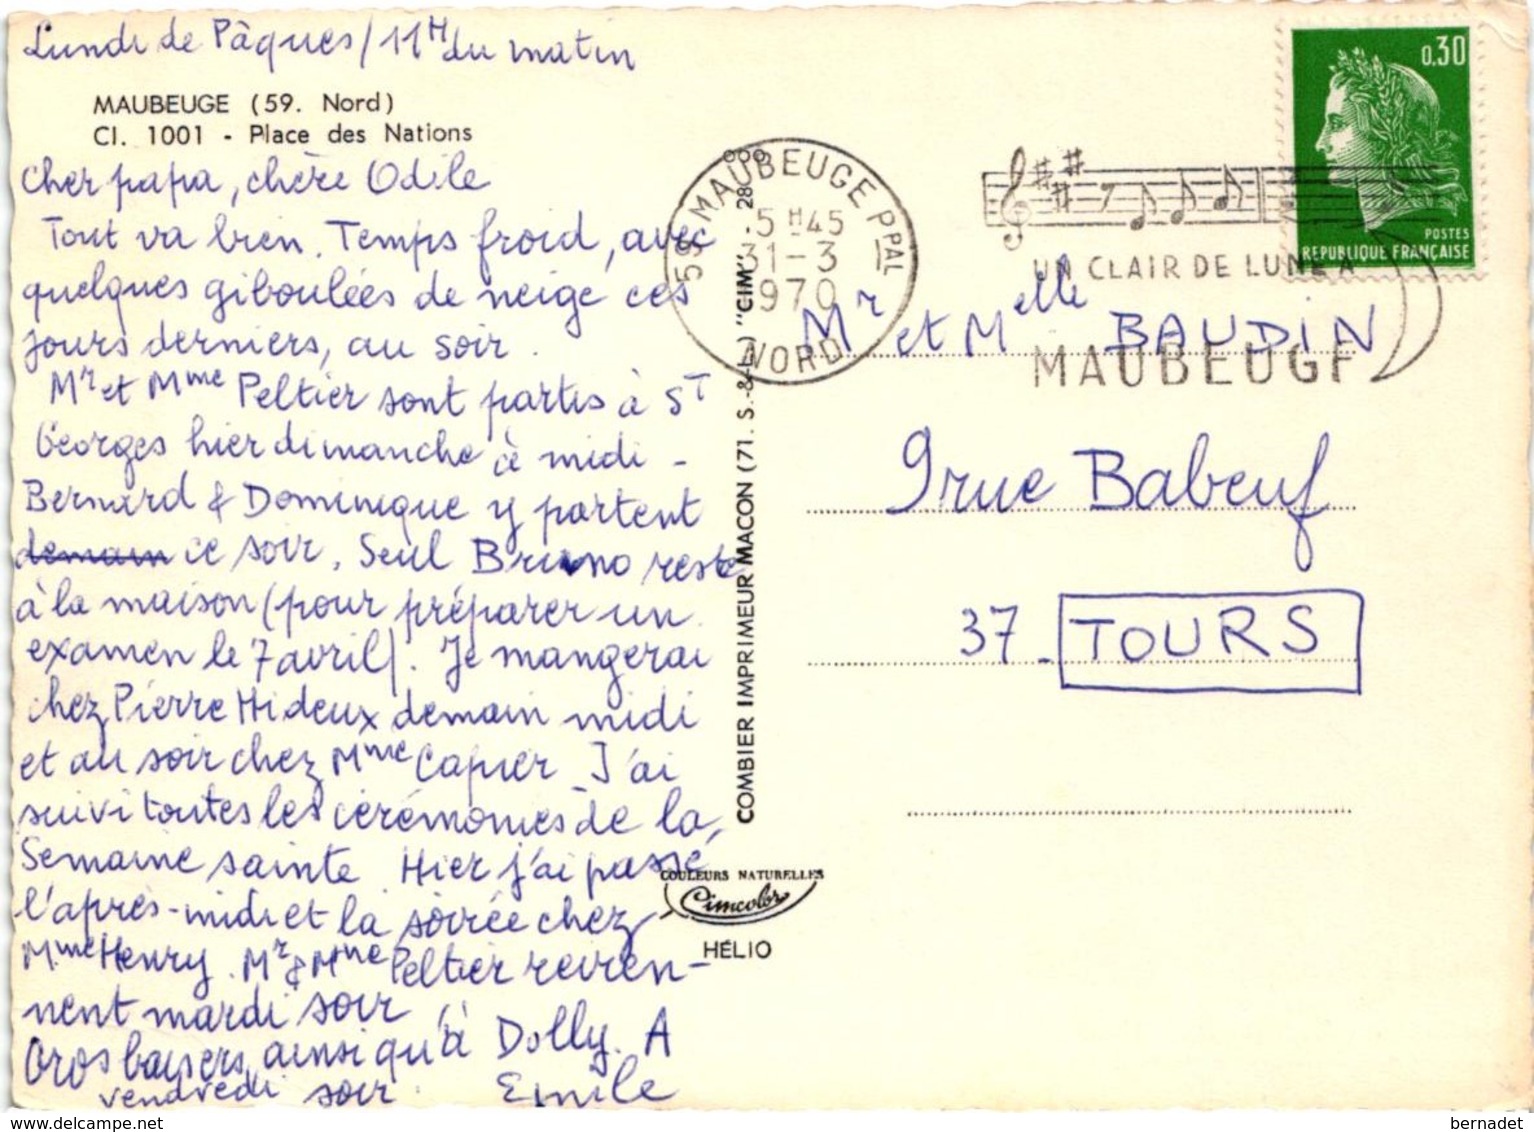 Lundi de Pâques / 11H du matin
MAUBEUGE (59. Nord)
CI. 1001 - Place des Nations
Cher papa, chère Odile
Tout va bien. Temps froid, avec
quelques giboulées de neige ces
jours derniers, au soir.
Mr et Mme Peltier sont partis à ST
Georges hier dimanche à midi -
Bernard & Dominique y partent
demain ce soir. Seul Bruno reste
à la maison (pour préparer un
examen le 7 avril). Je mangerai
chez Pierre Hideux demain midi
et au soir chez Mme Capier J'ai
suivi toutes les cérémonies de la
Semaine sainte. Hier j'ai passé
l'après-midi et la soirée chez
Mme Henry. Mr & Mme Peltier revien-
nent mardi soir
Gros baisers, ainsi qu'à Dolly. A
vendredi soir. Emile
COMBIER IMPRIMEUR MACON (71. S.-&-L.) "CIM"
COULEURS NATURELLES
Cimcolor
HÉLIO
59 MAUBEUGE PPAL
15H45
31-3
1970
NORD
UN CLAIR DE LUNE A
MAUBEUGE
0,30
POSTES
REPUBLIQUE FRANÇAISE
Mr et Melle BAUDIN
9 rue Babeuf
37 - TOURS
www.delcampe.net
bernadet